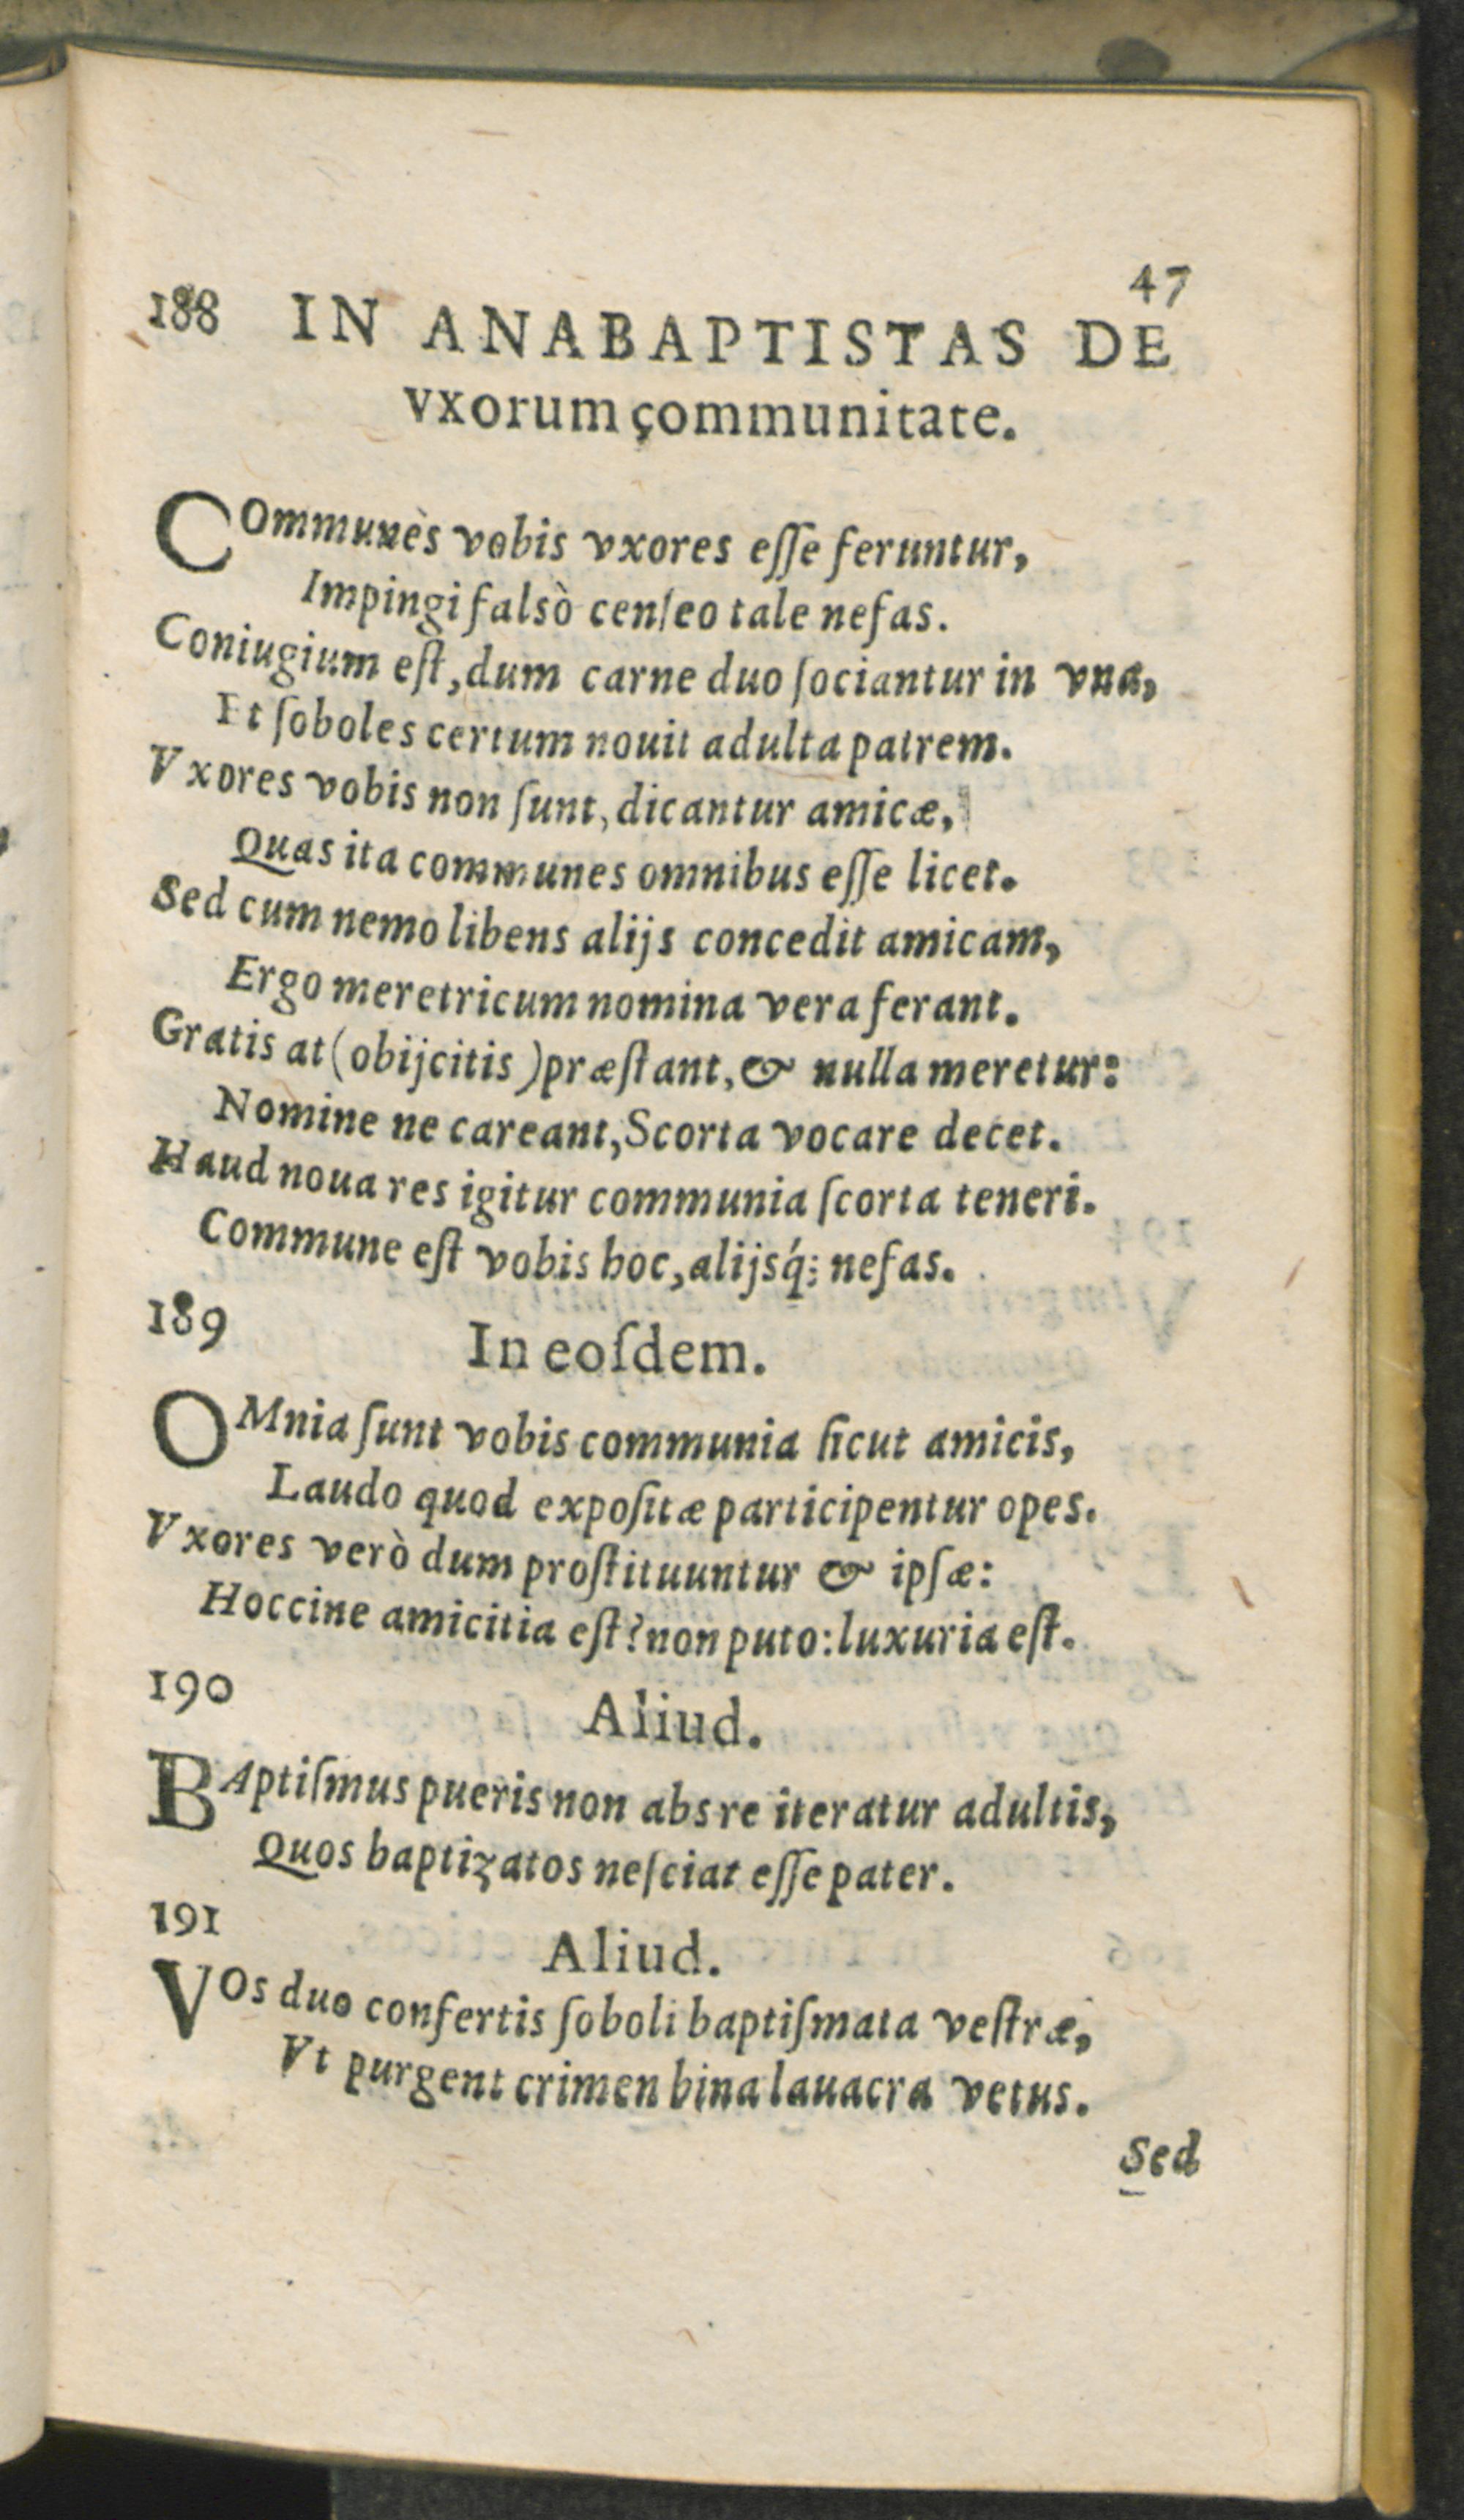 47
188 IN ANABAPTISTAS DE
vxorum çommunitate.
COmmunès vobis vxores eſſe feruntur,
Impingi falsò cenſeo tale nefas.
Coniugium eſt, dum carne duo ſociantur in vna,
Et ſoboles certum nouit adulta patrem.
Vxores vobis non ſunt, dicantur amicæ,
Quas ita communes omnibus eſſe licet.
Sed cum nemo libens alijs concedit amicam,
Ergo meretricum nomina vera ferant.
Gratis at (obijcitis) præſtant, & nulla meretur:
Nomine ne careant, Scorta vocare decet.
Haud noua res igitur communia ſcorta teneri.
Commune eſt vobis hoc, alijsq́; nefas.
189
In eoſdem.
OMnia ſunt vobis communia ſicut amicis,
Laudo quod expoſitæ participentur opes.
Vxores verò dum proſtituuntur & ipſæ:
Hoccine amicitia eſt? non puto: luxuria eſt.
190
Aliud.
BAptiſmus pueris non abs re iteratur adultis,
Quos baptizatos neſciat eſſe pater.
191
Aliud.
VOs duo confertis ſoboli baptiſmata veſtræ,
Vt purgent crimen bina lauacra vetus.
Sed